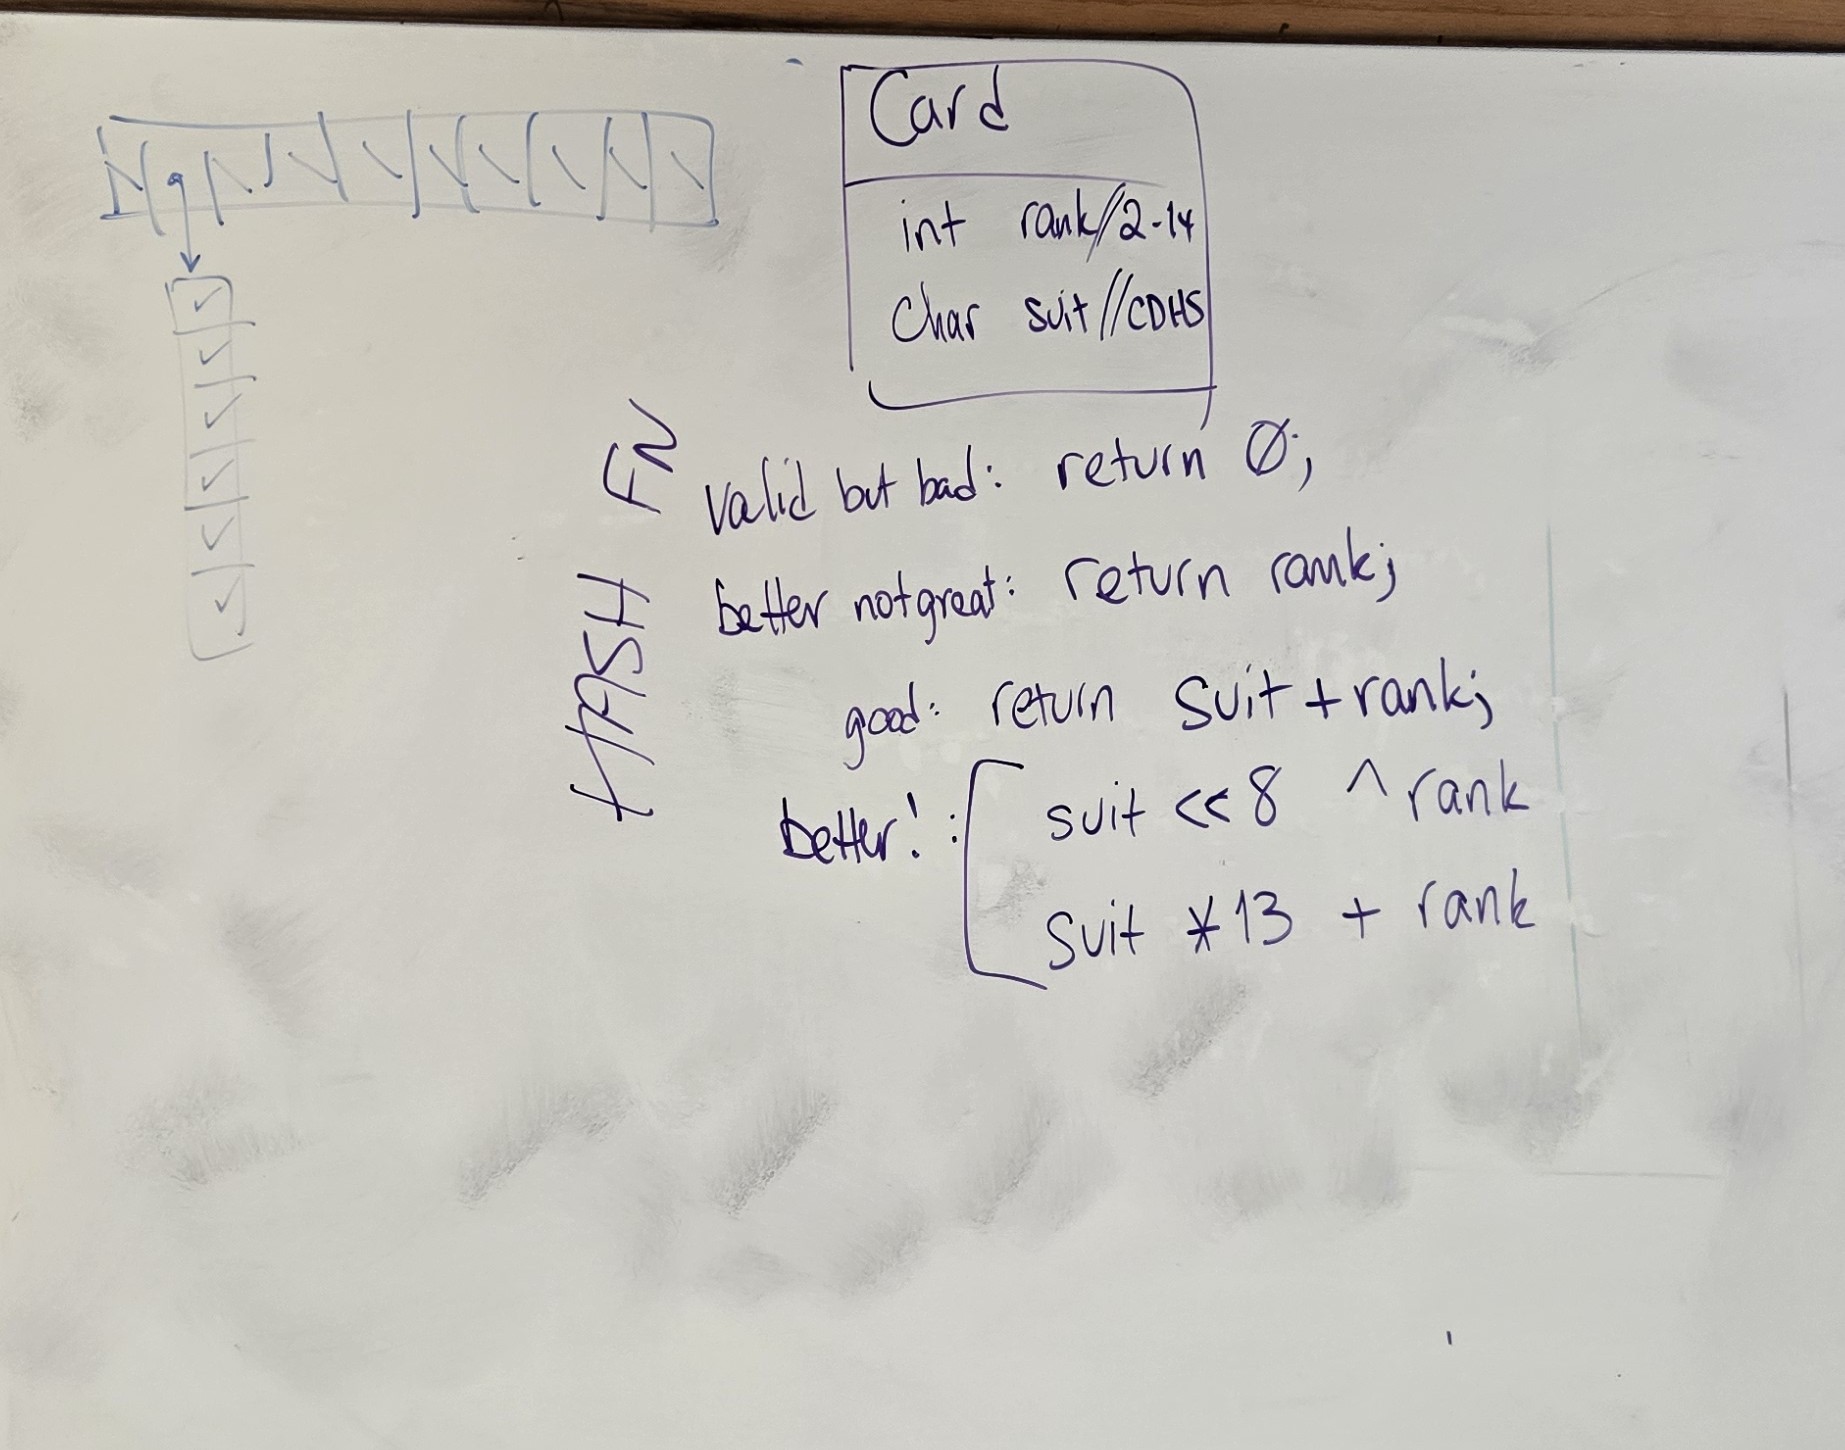 Card
int rank//2-14
Char suit//CDHS
HASH FN
valid but bad: return 0;
better not great: return rank;
good: return suit + rank;
better!: suit << 8 ^ rank
suit * 13 + rank